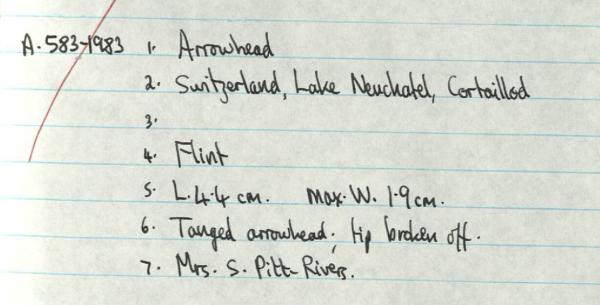 A.583-1983 1. Arrowhead
2. Switzerland, Lake Neuchatel, Cortaillod
3.
4. Flint
5. L.4.4 cm. Max. W. 1.9 cm.
6. Tanged arrowhead; tip broken off.
7. Mrs. S. Pitt-Rivers.